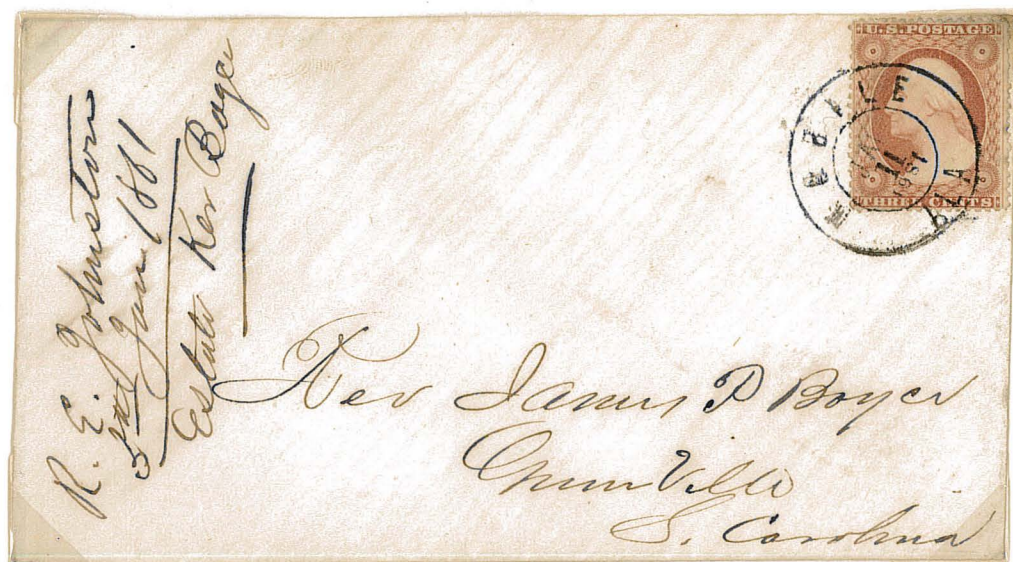 U.S. POSTAGE
THREE CENTS
MOBILE ALA
11
1861
R. E. Johnston
5th Jany 1861
Estate Ker Boyce
Rev James P Boyce
GreenVille
S. Carolina